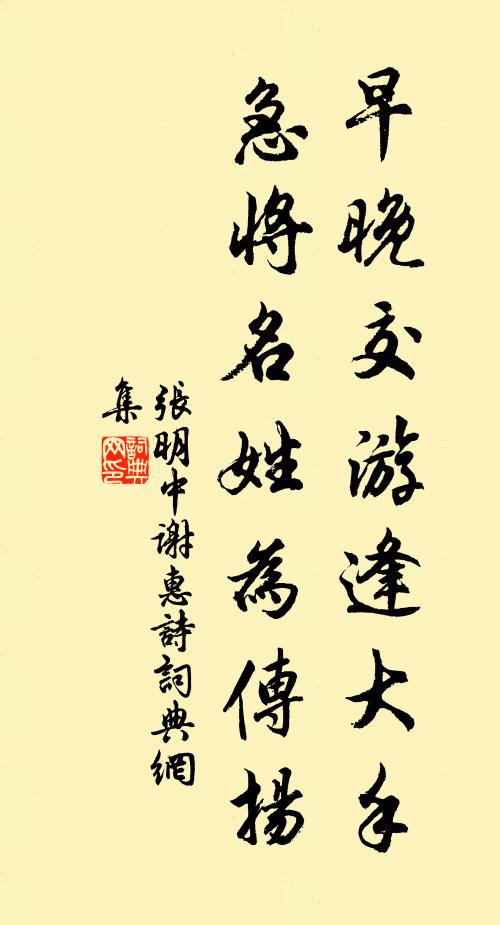 早晚交游逢大手
急將名姓為傳揚
張明中謝惠詩詞典網
集
詞典網印